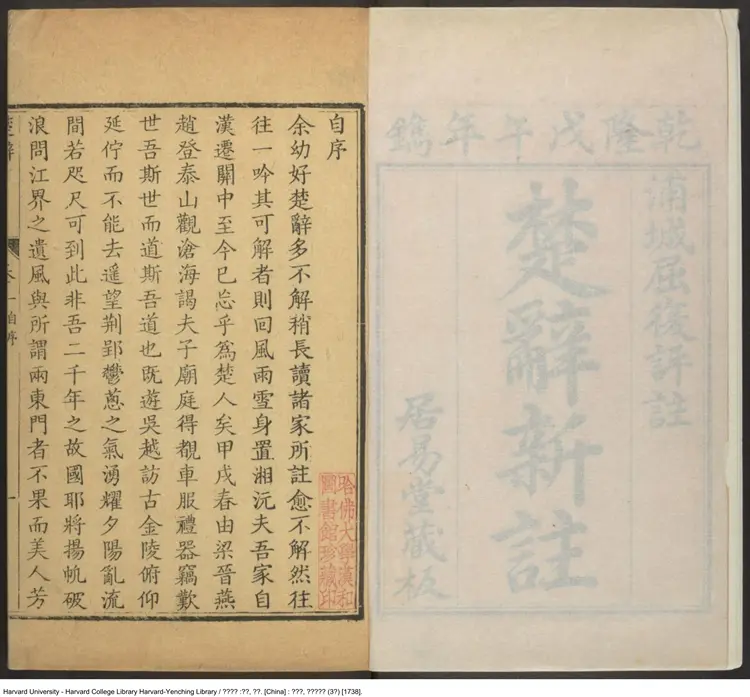 乾隆戊午年鐫
蒲城屈復評註
楚辭新註
居易堂藏板
自序
余幼好楚辭多不解稍長讀諸家所註愈不解然往
往一吟其可解者則回風雨雪身置湘沅夫吾家自
漢遷關中至今已忘乎為楚人矣甲戌春由梁晉燕
趙登泰山觀滄海謁夫子廟庭得覩車服禮器竊歎
世吾斯世而道斯吾道也既遊吳越訪古金陵俯仰
延佇而不能去遥望荆郢鬱蔥之氣湧耀夕陽亂流
間若咫尺可到此非吾二千年之故國耶將揚帆破
浪問江界之遺風與所謂兩東門者不果而美人芳
楚辭
自序
一
哈佛大學漢和
圖書館珍藏印
Harvard University - Harvard College Library Harvard-Yenching Library / ???? :??, ??. [China] : ???, ????? (3?) [1738].